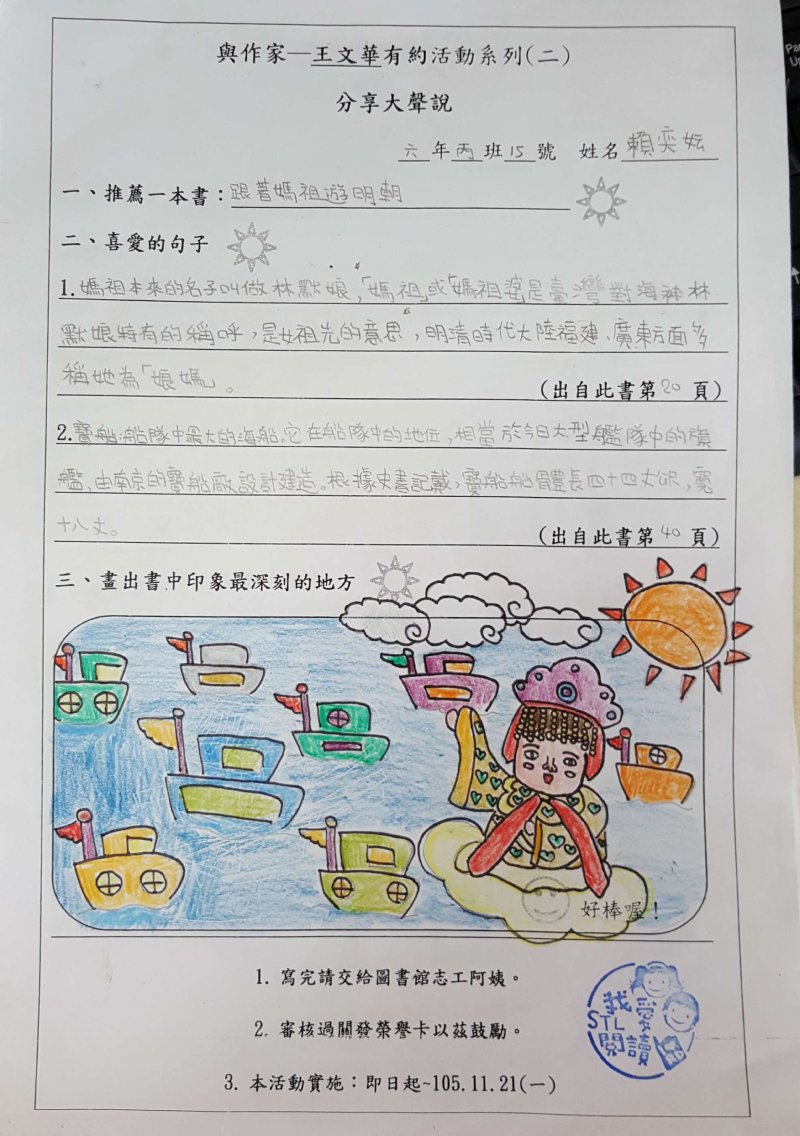 與作家—王文華有約活動系列(二)
分享大聲說
六年丙班15號 姓名賴奕妘
一、推薦一本書：跟著媽祖遊明朝
二、喜愛的句子
1.媽祖本來的名子叫做林默娘,「媽祖」或「媽祖婆是臺灣對海神林
默娘特有的稱呼，是女祖先的意思，明清時代大陸福建、廣東方面多
稱她為「娘媽」。
(出自此書第20頁)
2.寶船:船隊中最大的海船。它在船隊中的地位,相當於今日大型艦隊中的旗
艦,由南京的寶船廠設計建造。根據史書記戴,寶船船體長四十四丈,寬
十八丈。
(出自此書第40頁)
三、畫出書中印象最深刻的地方
好棒喔！
1. 寫完請交給圖書館志工阿姨。
2. 審核過關發榮譽卡以茲鼓勵。
3. 本活動實施：即日起~105.11.21(一)
我愛
STL
閱讀